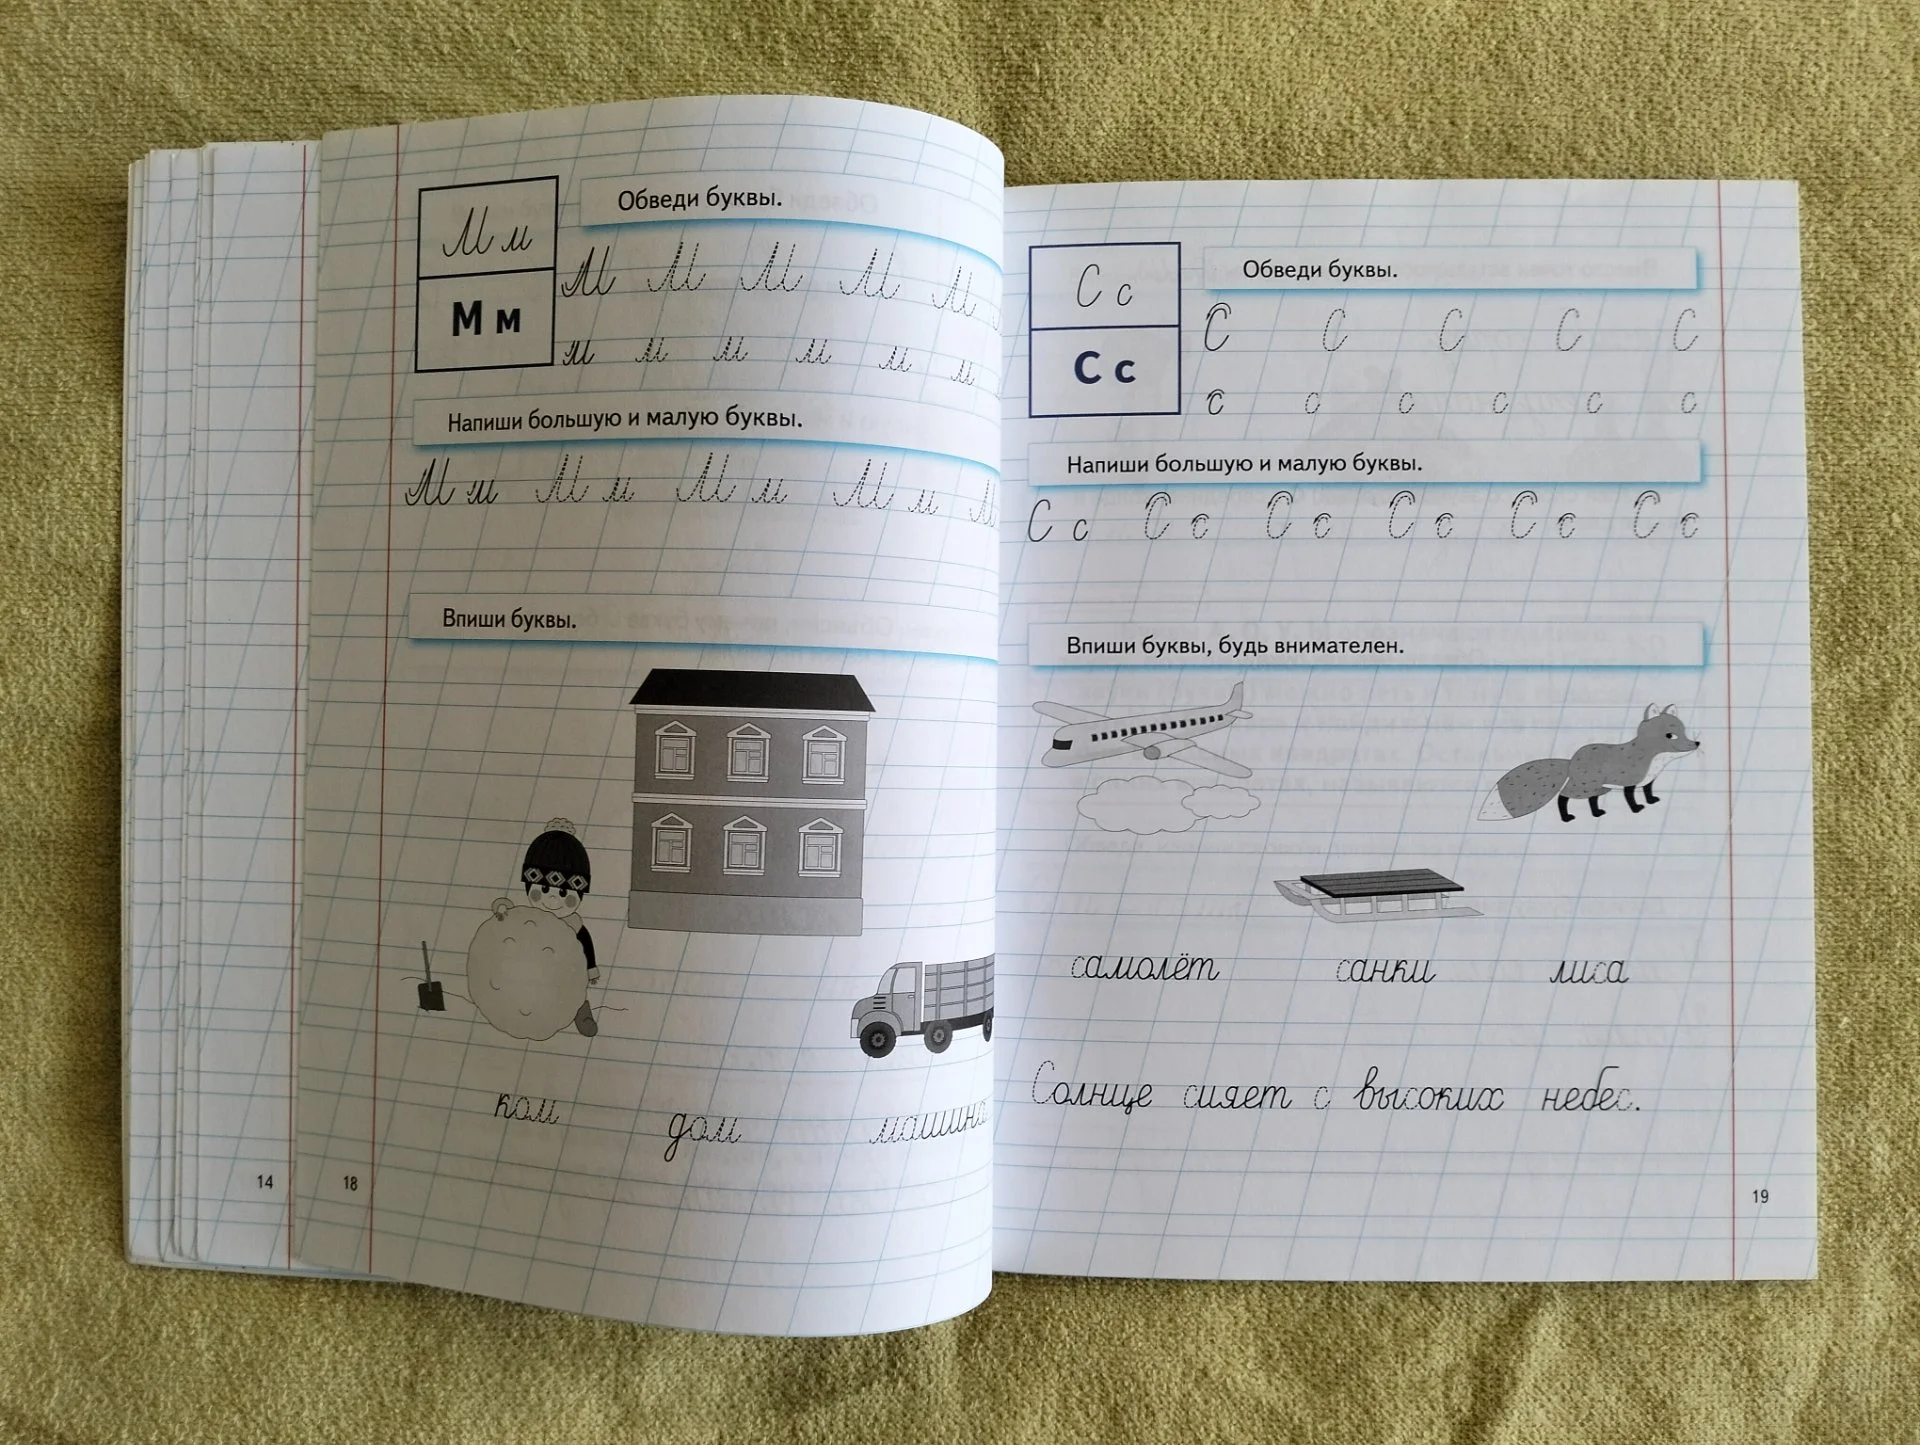 М м
М м
Обведи буквы.
М М М М М
м м м м м м
Напиши большую и малую буквы.
М м М м М м М м М
Впиши буквы.
ком дом машина
14
18
С с
С с
Обведи буквы.
С С С С С
с с с с с с
Напиши большую и малую буквы.
С с С с С с С с С с С с
Впиши буквы, будь внимателен.
самолёт санки лиса
Солнце сияет с высоких небес.
19